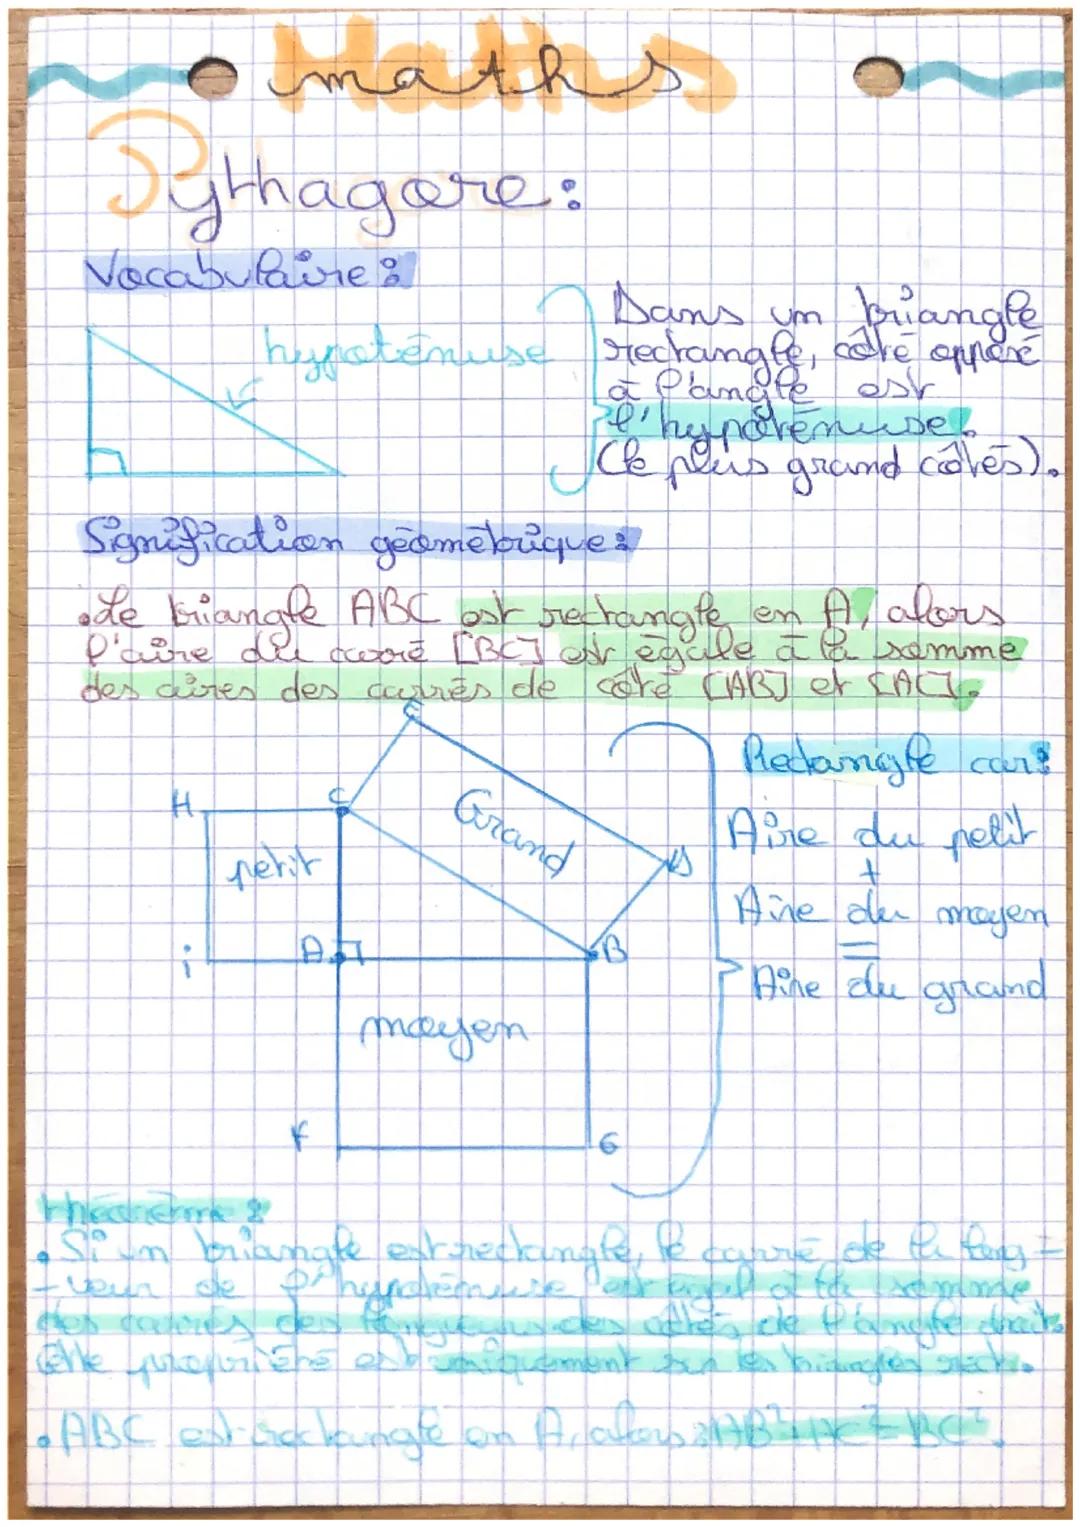 Maths
maths
Pythagore :
Vocabulaire :
hypoténuse
Dans un triangle
rectangle, côté opposé
à l'angle est
l'hypoténuse.
(le plus grand côtés).
Signification géométrique :
• Le triangle ABC est rectangle en A, alors
l'aire du carré [BC] est égale à la somme
des aires des carrés de côté [AB] et [AC].
E
Rectangle car :
H
C
Grand
Aire du petit
petit
D
+
Aire du moyen
=
i
A
B
Aire du grand
moyen
F
G
théorème :
• Si un triangle est rectangle, le carré de la long-
-ueur de l'hypoténuse est égal à la somme
des carrés des longueurs des côtés de l'angle droit.
Cette propriété est uniquement sur les triangles rect.
• ABC est rectangle en A, alors : AB² + AC² = BC².